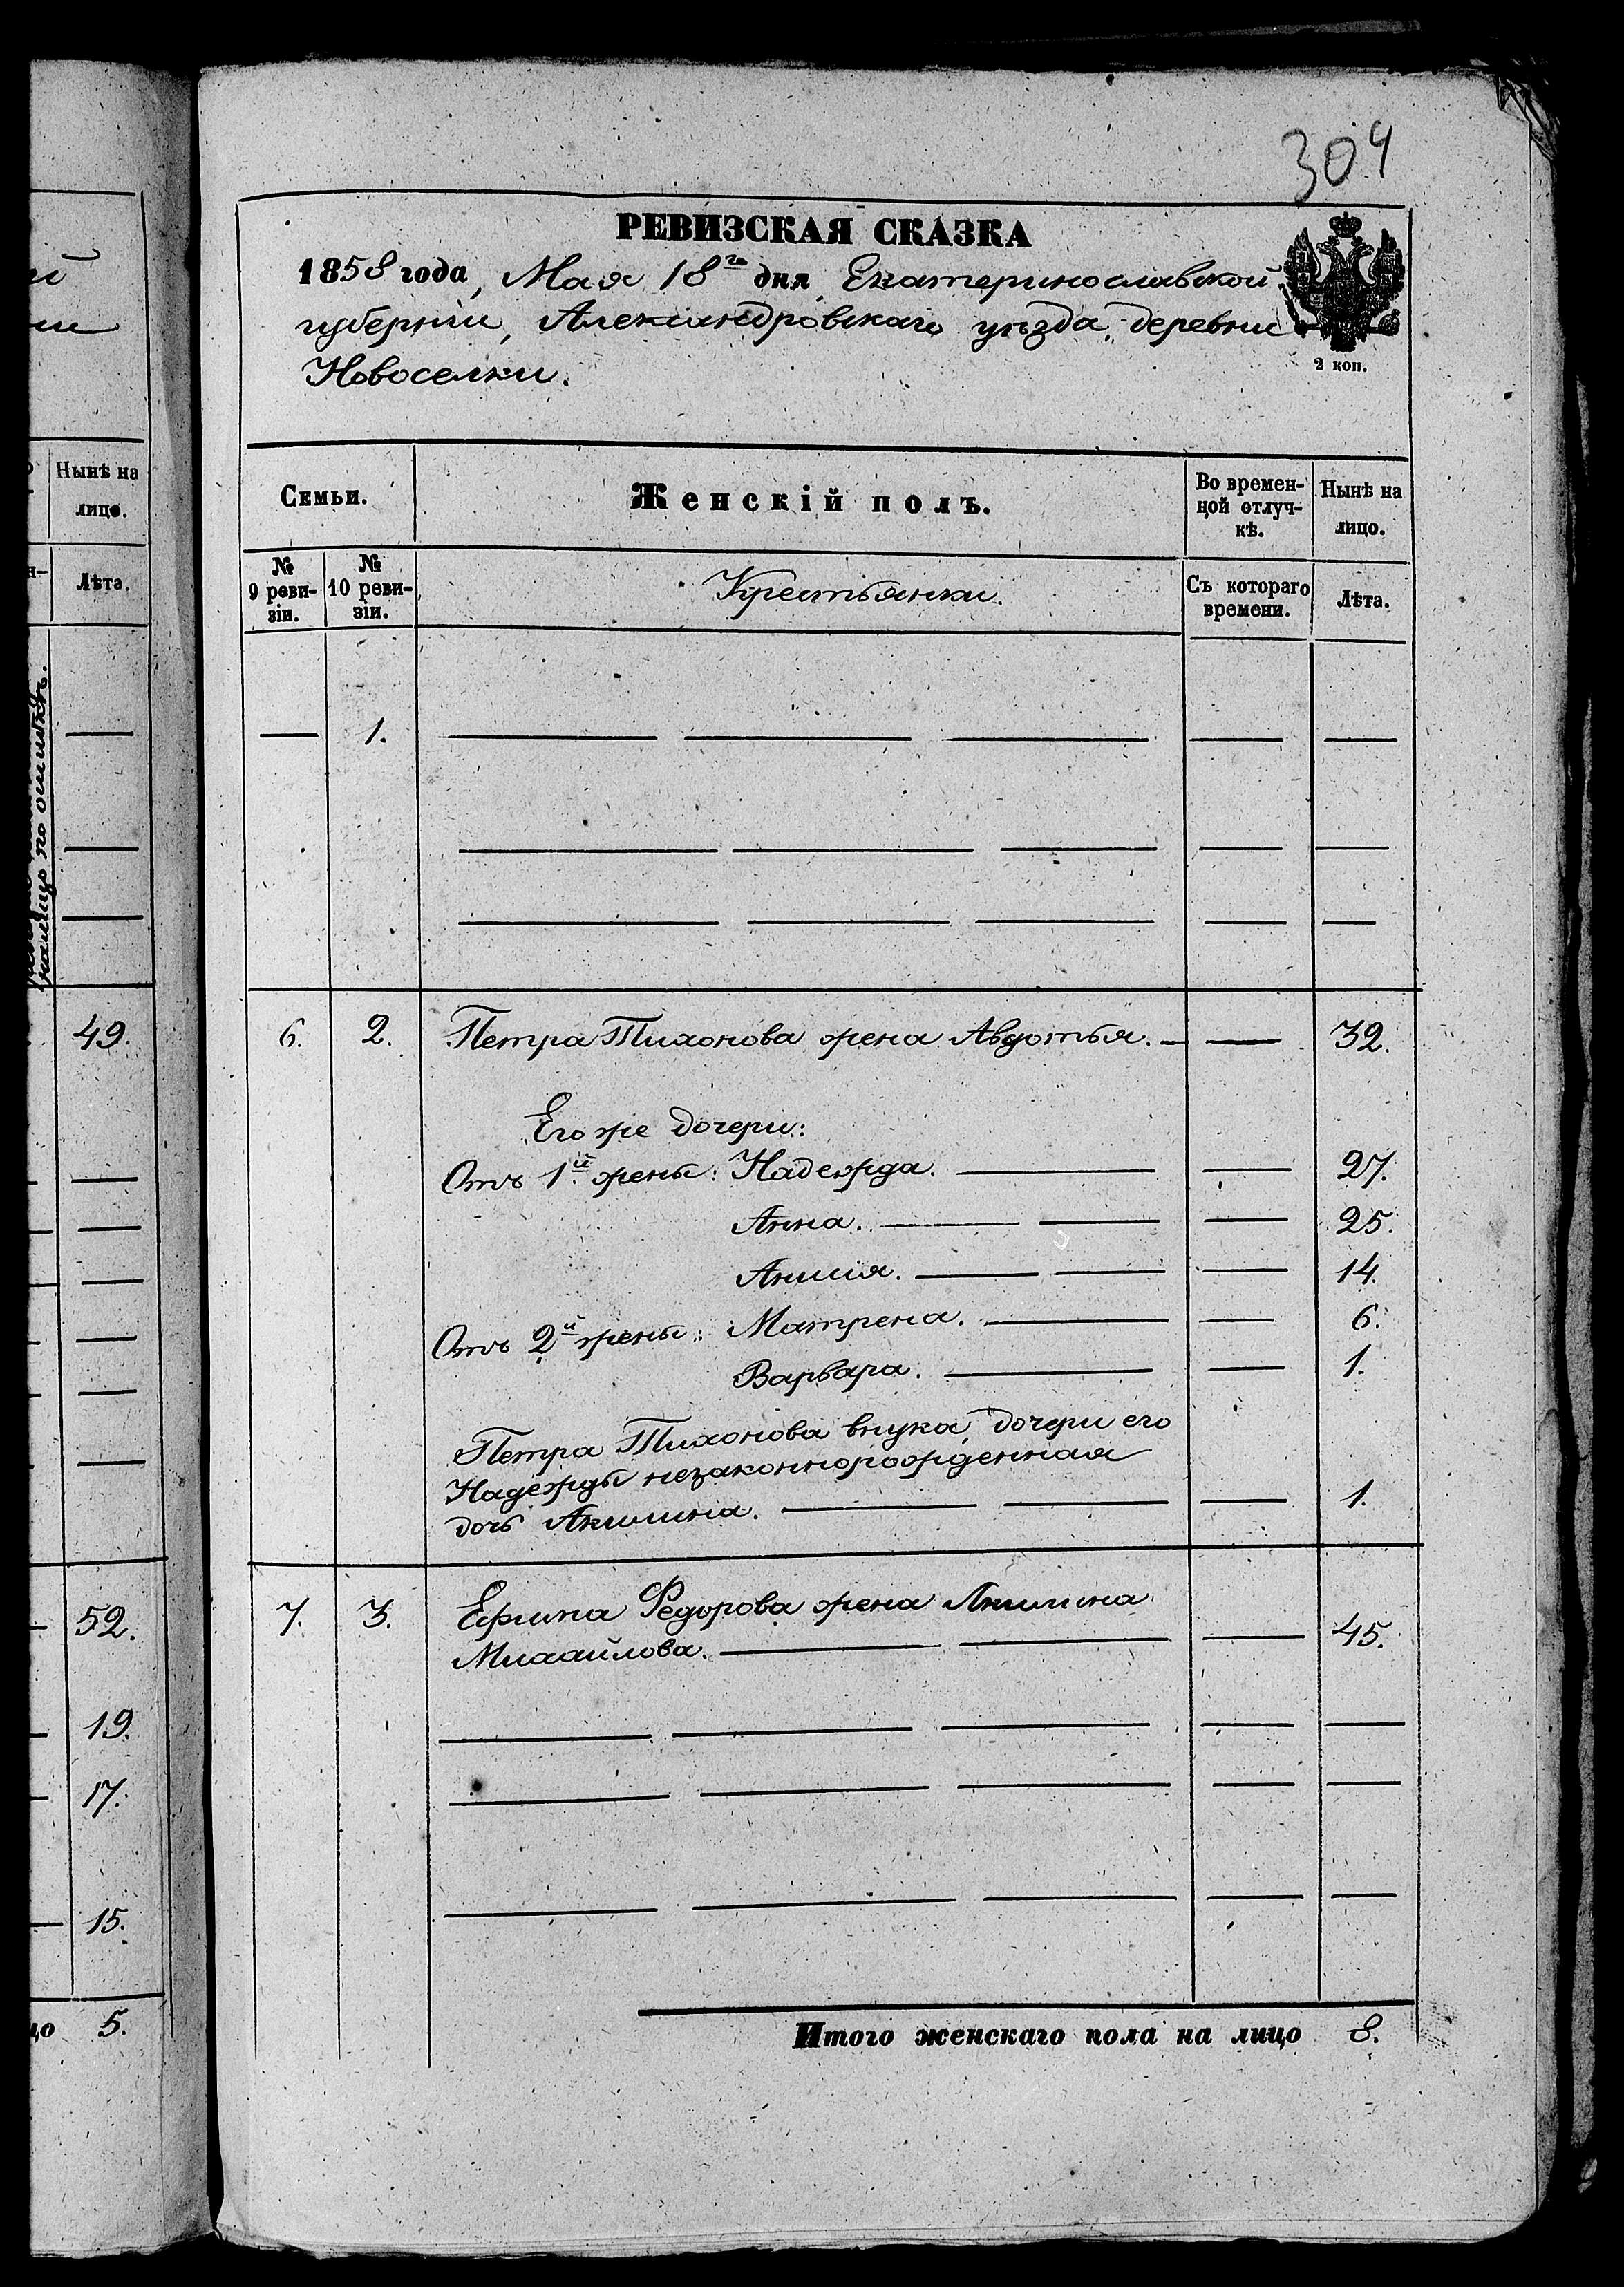 й
ии
Нынѣ на
лицо.
Лѣта.
налицо по ошибкѣ.
49.
52.
19.
17.
15.
цо 5.
304
РЕВИЗСКАЯ СКАЗКА
1858 года, Мая 18го дня, Екатеринославской
губернiи, Александровскаго уѣзда, деревни
Новоселки.
2 коп.
Семьи.
Женскiй полъ.
Во времен-
ной отлуч-
кѣ.
Нынѣ на
лицо.
№
9 реви-
зiи.
№
10 реви-
зiи.
Крестьянки.
Съ котораго
времени.
Лѣта.
— 1. — — — — —
— — — — —
— — — — —
6. 2. Петра Тихонова жена Авдотья. — — 32.
Его же дочери:
Отъ 1й жены: Надежда. — — 27.
Анна. — — — 25.
Анисiя. — — — 14.
Отъ 2й жены: Матрена. — — 6.
Варвара. — — 1.
Петра Тихонова внука, дочери его
Надежды незаконнорожденная
дочь Акилина. — — — 1.
7. 3. Ефима Федорова жена Акилина
Михайлова. — — — 45.
— — — — —
— — — — —
— — — — —
Итого женскаго пола на лицо 8.